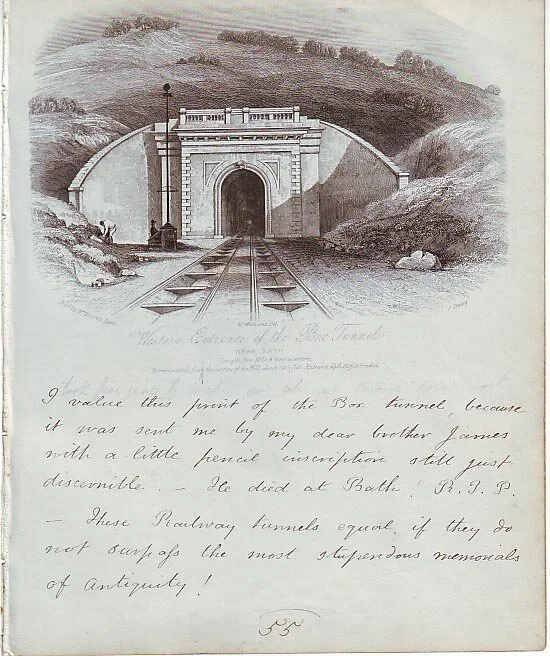 W. Williams Del.
J. Darby
Western Entrance of the Box Tunnel
NEAR BATH
I value this print of the Box tunnel, because
it was sent me by my dear brother James
with a little pencil inscription still just
discernible. — He died at Bath! R.I.P.
— These Railway tunnels equal, if they do
not surpass the most stupendous memorials
of Antiquity!
55